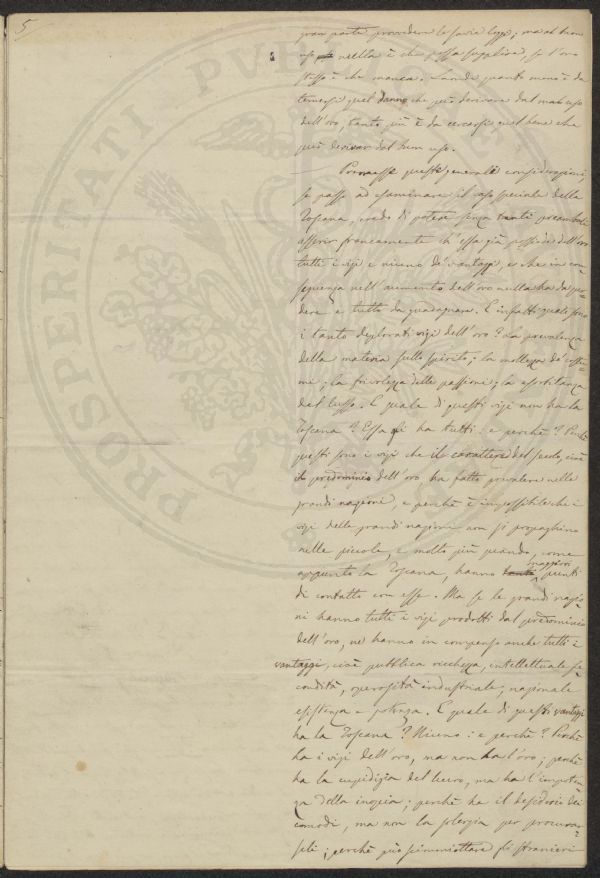 5
gran parte provvedere le savie leggi; ma al buon
uso nulla è che possa supplire, se l'oro
stesso è che manca. Laonde quanto meno è da
temersi quel danno che può derivare dal mal uso
dell'oro, tanto più è da cercarsi quel bene che
può derivar dal buon uso.
Premesse queste generali considerazioni,
se passo ad esaminare il caso speciale della
Toscana, credo di potere senza tanti preamboli
asserir francamente ch'essa già possiede dell'oro
tutti i vizi e niuno de' vantaggi, e che in con-
seguenza nell'aumento dell'oro nulla ha da per-
dere e tutto da guadagnare. E infatti quali sono
i tanto deplorati vizi dell'oro? La prevalenza
della materia sullo spirito; la mollezza de' costu-
mi; la frivolezza delle passioni; la esorbitanza
del lusso. E quale di questi vizi non ha la
Toscana? Essa gli ha tutti: e perchè? Perchè
questi sono i vizi che il carattere del secolo, cioè
il predominio dell'oro ha fatto prevalere nelle
grandi nazioni, e perchè è impossibile che i
vizi delle grandi nazioni non si propaghino
nelle piccole, e molto più quando, come
appunto la Toscana, hanno tanti maggiori punti
di contatto con esse. Ma se le grandi nazio-
ni hanno tutti i vizi prodotti dal predominio
dell'oro, ne hanno in compenso anche tutti i
vantaggi, cioè pubblica ricchezza, intellettuale fe-
condità, operosità industriale, nazionale
esistenza e potenza. E quale di questi vantaggi
ha la Toscana? Niuno: e perchè? Perchè
ha i vizi dell'oro, ma non ha l'oro; perchè
ha la cupidigia del lucro, ma ha l'impoten-
za della inopia; perchè ha il desiderio dei
comodi, ma non la solerzia per procurar-
seli; perchè può scimmiottare gli stranieri
PROSPERITATI PVBLICAE